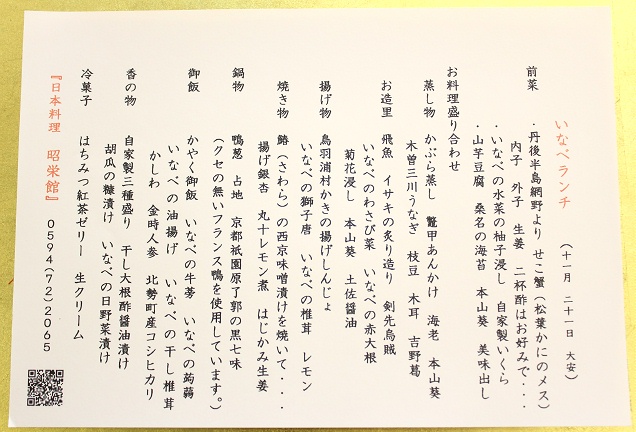 いなべランチ （十一月 二十一日 大安）
前菜 ・丹後半島網野より せこ蟹（松葉かにのメス）
内子 外子 生姜 二杯酢はお好みで・・・
・いなべの水菜の柚子浸し 自家製いくら
・山芋豆腐 桑名の海苔 本山葵 美味出し
お料理盛り合わせ
蒸し物 かぶら蒸し 鼈甲あんかけ 海老 本山葵
木曽三川うなぎ 枝豆 木耳 吉野葛
お造里 飛魚 イサキの炙り造り 剣先烏賊
いなべのわさび菜 いなべの赤大根
菊花浸し 本山葵 土佐醤油
揚げ物 鳥羽浦村かきの揚げしんじょ
いなべの獅子唐 いなべの椎茸 レモン
焼き物 鰆（さわら）の西京味噌漬けを焼いて・・・
揚げ銀杏 丸十レモン煮 はじかみ生姜
鍋物 鴨葱 占地 京都祇園原了郭の黒七味
（クセの無いフランス鴨を使用しています。）
御飯 かやく御飯 いなべの牛蒡 いなべの蒟蒻
いなべの油揚げ いなべの干し椎茸
かしわ 金時人参 北勢町産コシヒカリ
香の物 自家製三種盛り 干し大根酢醤油漬け
胡瓜の糠漬け いなべの日野菜漬け
冷菓子 はちみつ紅茶ゼリー 生クリーム
『日本料理 昭栄館』 0594(72)2065